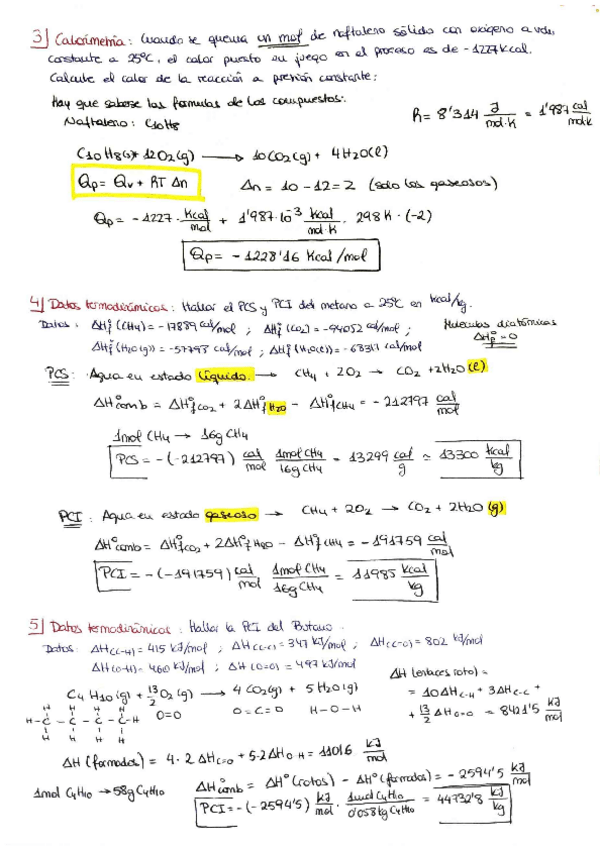 3) Calorimetría: Cuando se quema un mol de naftaleno sólido con oxígeno a vol.
constante a 25ºC, el calor puesto en juego en el proceso es de -1227 Kcal.
Calcule el calor de la reacción a presión constante:
Hay que saberse las formulas de los compuestos:
Naftaleno: C10H8
R = 8'314 J/mol·K = 1'987 cal/mol·K
C10H8(s) + 12O2(g) → 10CO2(g) + 4H2O(l)
Qp = Qv + RT Δn
Δn = 10 - 12 = 2 (solo los gaseosos)
Qp = -1227 · Kcal/mol + 1'987·10^-3 Kcal/mol·K · 298K · (-2)
Qp = -1228'16 Kcal/mol
4) Datos termodinámicos: Hallar el PCS y PCI del metano a 25ºC en Kcal/kg.
Datos: ΔHfº(CH4) = -17889 cal/mol ; ΔHfº(CO2) = -94052 cal/mol ;
ΔHfº(H2O(g)) = -57798 cal/mol ; ΔHfº(H2O(l)) = -68317 cal/mol
Moléculas diatómicas
ΔHfº = 0
PCS: Agua en estado líquido. → CH4 + 2O2 → CO2 + 2H2O (l)
ΔHºcomb = ΔHºf CO2 + 2ΔHºf H2O - ΔHºf CH4 = -212797 cal/mol
1mol CH4 → 16g CH4
PCS = -(-212797) cal/mol 1mol CH4/16g CH4 = 13299 cal/g ≃ 13300 Kcal/kg
PCI: Agua en estado gaseoso → CH4 + 2O2 → CO2 + 2H2O (g)
ΔHºcomb = ΔHºf CO2 + 2ΔHºf H2O - ΔHºf CH4 = -191759 cal/mol
PCI = -(-191759) cal/mol 1mol CH4/16g CH4 = 11985 Kcal/kg
5) Datos termodinámicos: Hallar la PCI del Butano.
Datos: ΔH(C-H) = 415 KJ/mol ; ΔH(C-C) = 347 KJ/mol ; ΔH(C=O) = 802 KJ/mol
ΔH(O-H) = 460 KJ/mol ; ΔH(O=O) = 497 KJ/mol
C4H10(g) + 13/2 O2(g) → 4CO2(g) + 5H2O(g)
H H H H
H-C-C-C-C-H O=O O=C=O H-O-H
H H H H
ΔH (enlaces rotos) =
= 10ΔH C-H + 3ΔH C-C +
+ 13/2 ΔH O=O = 8421'5 KJ/mol
ΔH (formados) = 4·2ΔH C=O + 5·2ΔH O-H = 11016 KJ/mol
1mol C4H10 → 58g C4H10
ΔHºcomb = ΔHº(rotos) - ΔHº(formados) = -2594'5 KJ/mol
PCI = -(-2594'5) KJ/mol · 1mol C4H10/0'058kg C4H10 = 44732'8 KJ/kg